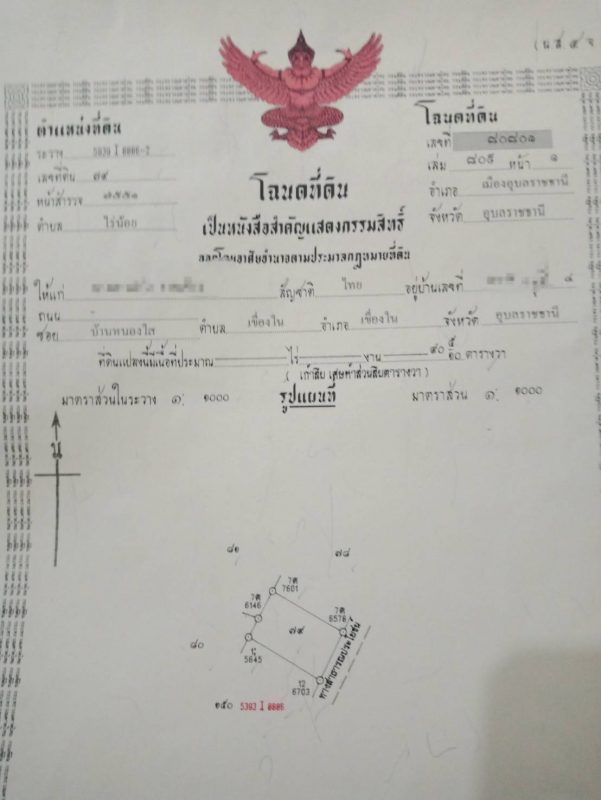 (น.ส.๔ จ
ตำแหน่งที่ดิน
ระวาง 5839 I 0806-2
เลขที่ดิน ๗๙
หน้าสำรวจ ๗๕๕๑
ตำบล ไร่น้อย
โฉนดที่ดิน
เลขที่ ๘๐๘๐๑
เล่ม ๘๐๙ หน้า ๑
อำเภอ เมืองอุบลราชธานี
จังหวัด อุบลราชธานี
โฉนดที่ดิน
เป็นหนังสือสำคัญแสดงกรรมสิทธิ์
ออกโดยอาศัยอำนาจตามประมวลกฎหมายที่ดิน
ให้แก่ สัญชาติ ไทย อยู่บ้านเลขที่ ๔
ถนน
ซอย บ้านหนองใส ตำบล เขื่องใน อำเภอ เขื่องใน จังหวัด อุบลราชธานี
ที่ดินแปลงนี้มีเนื้อที่ประมาณ ไร่ งาน ๙๐ ๕/๑๐ ตารางวา
( เก้าสิบ เศษห้าส่วนสิบตารางวา )
มาตราส่วนในระวาง ๑: ๑๐๐๐ รูปแผนที่ มาตราส่วน ๑: ๑๐๐๐
น
๘๑
๗๘
7ต
7601
7ต
6146
7ต
6576
๗๙
๘๐
5645
12
6703
ทางสาธารณประโยชน์
๑๕๐ 5393 I 0806